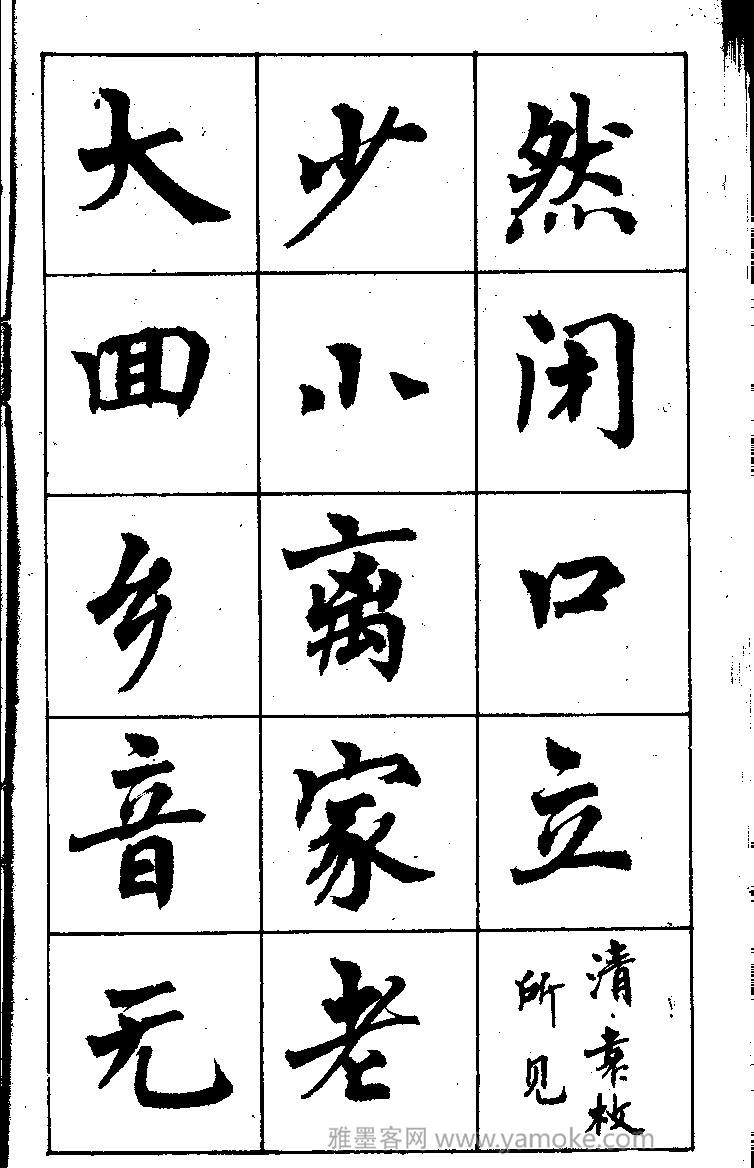 然闭口立
清·袁枚
所见
少小离家老
大回乡音无
雅墨客网 www.yamoke.com